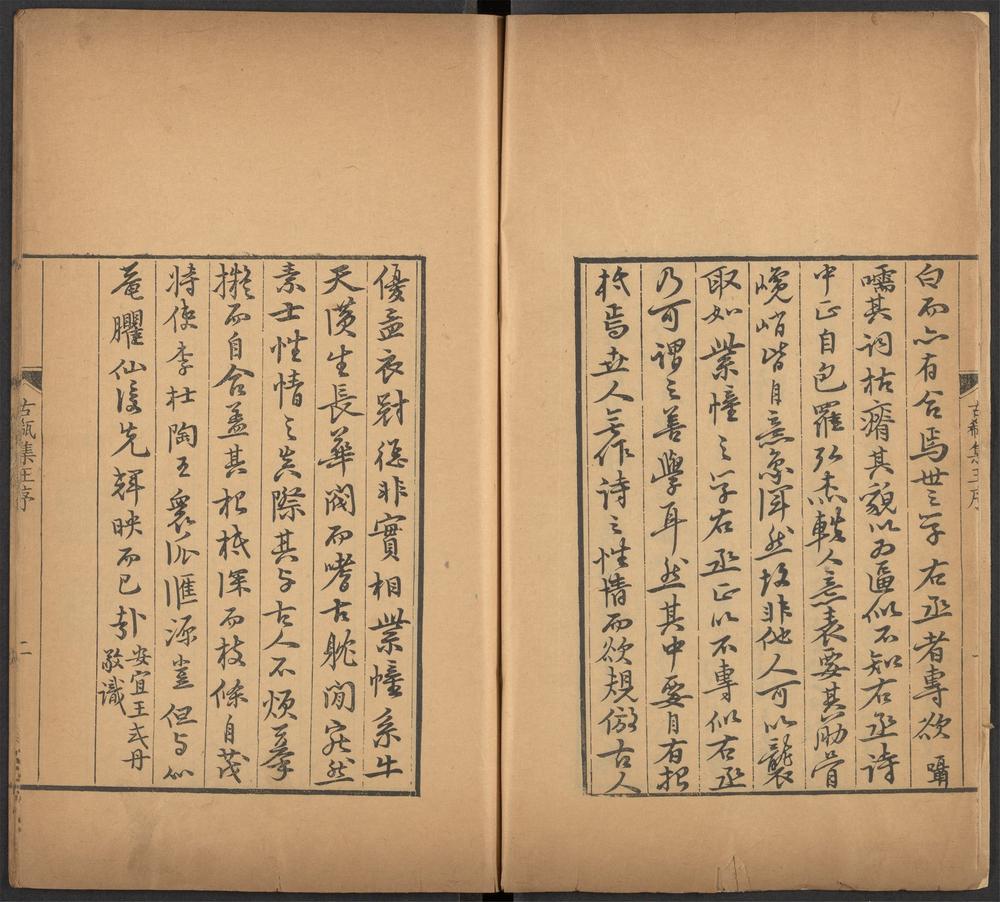 白而亦有合焉世之學右丞者專欲囁
嚅其詞枯瘠其貌以為逼似不知右丞詩
中正自包羅弘杰軼人意表要其肋骨
巉峭皆自意象渾然故非他人可以襲
取如紫幢之學右丞正以不專似右丞
乃可謂之善學耳然其中要自有根
柢焉世人無作詩之性情而欲規倣古人
古瓻集王序
一
優孟衣冠總非實相紫幢系牛
天潢生長華閥而嗜古耽閒宛然
素士性情之真際其與古人不煩摹
擬而自合蓋其根柢深而枝條自茂
將使李杜陶王眾派匯源豈但與仙
菴臞仙後先輝映而已歟安宜王式丹
敬識
古瓻集王序
二